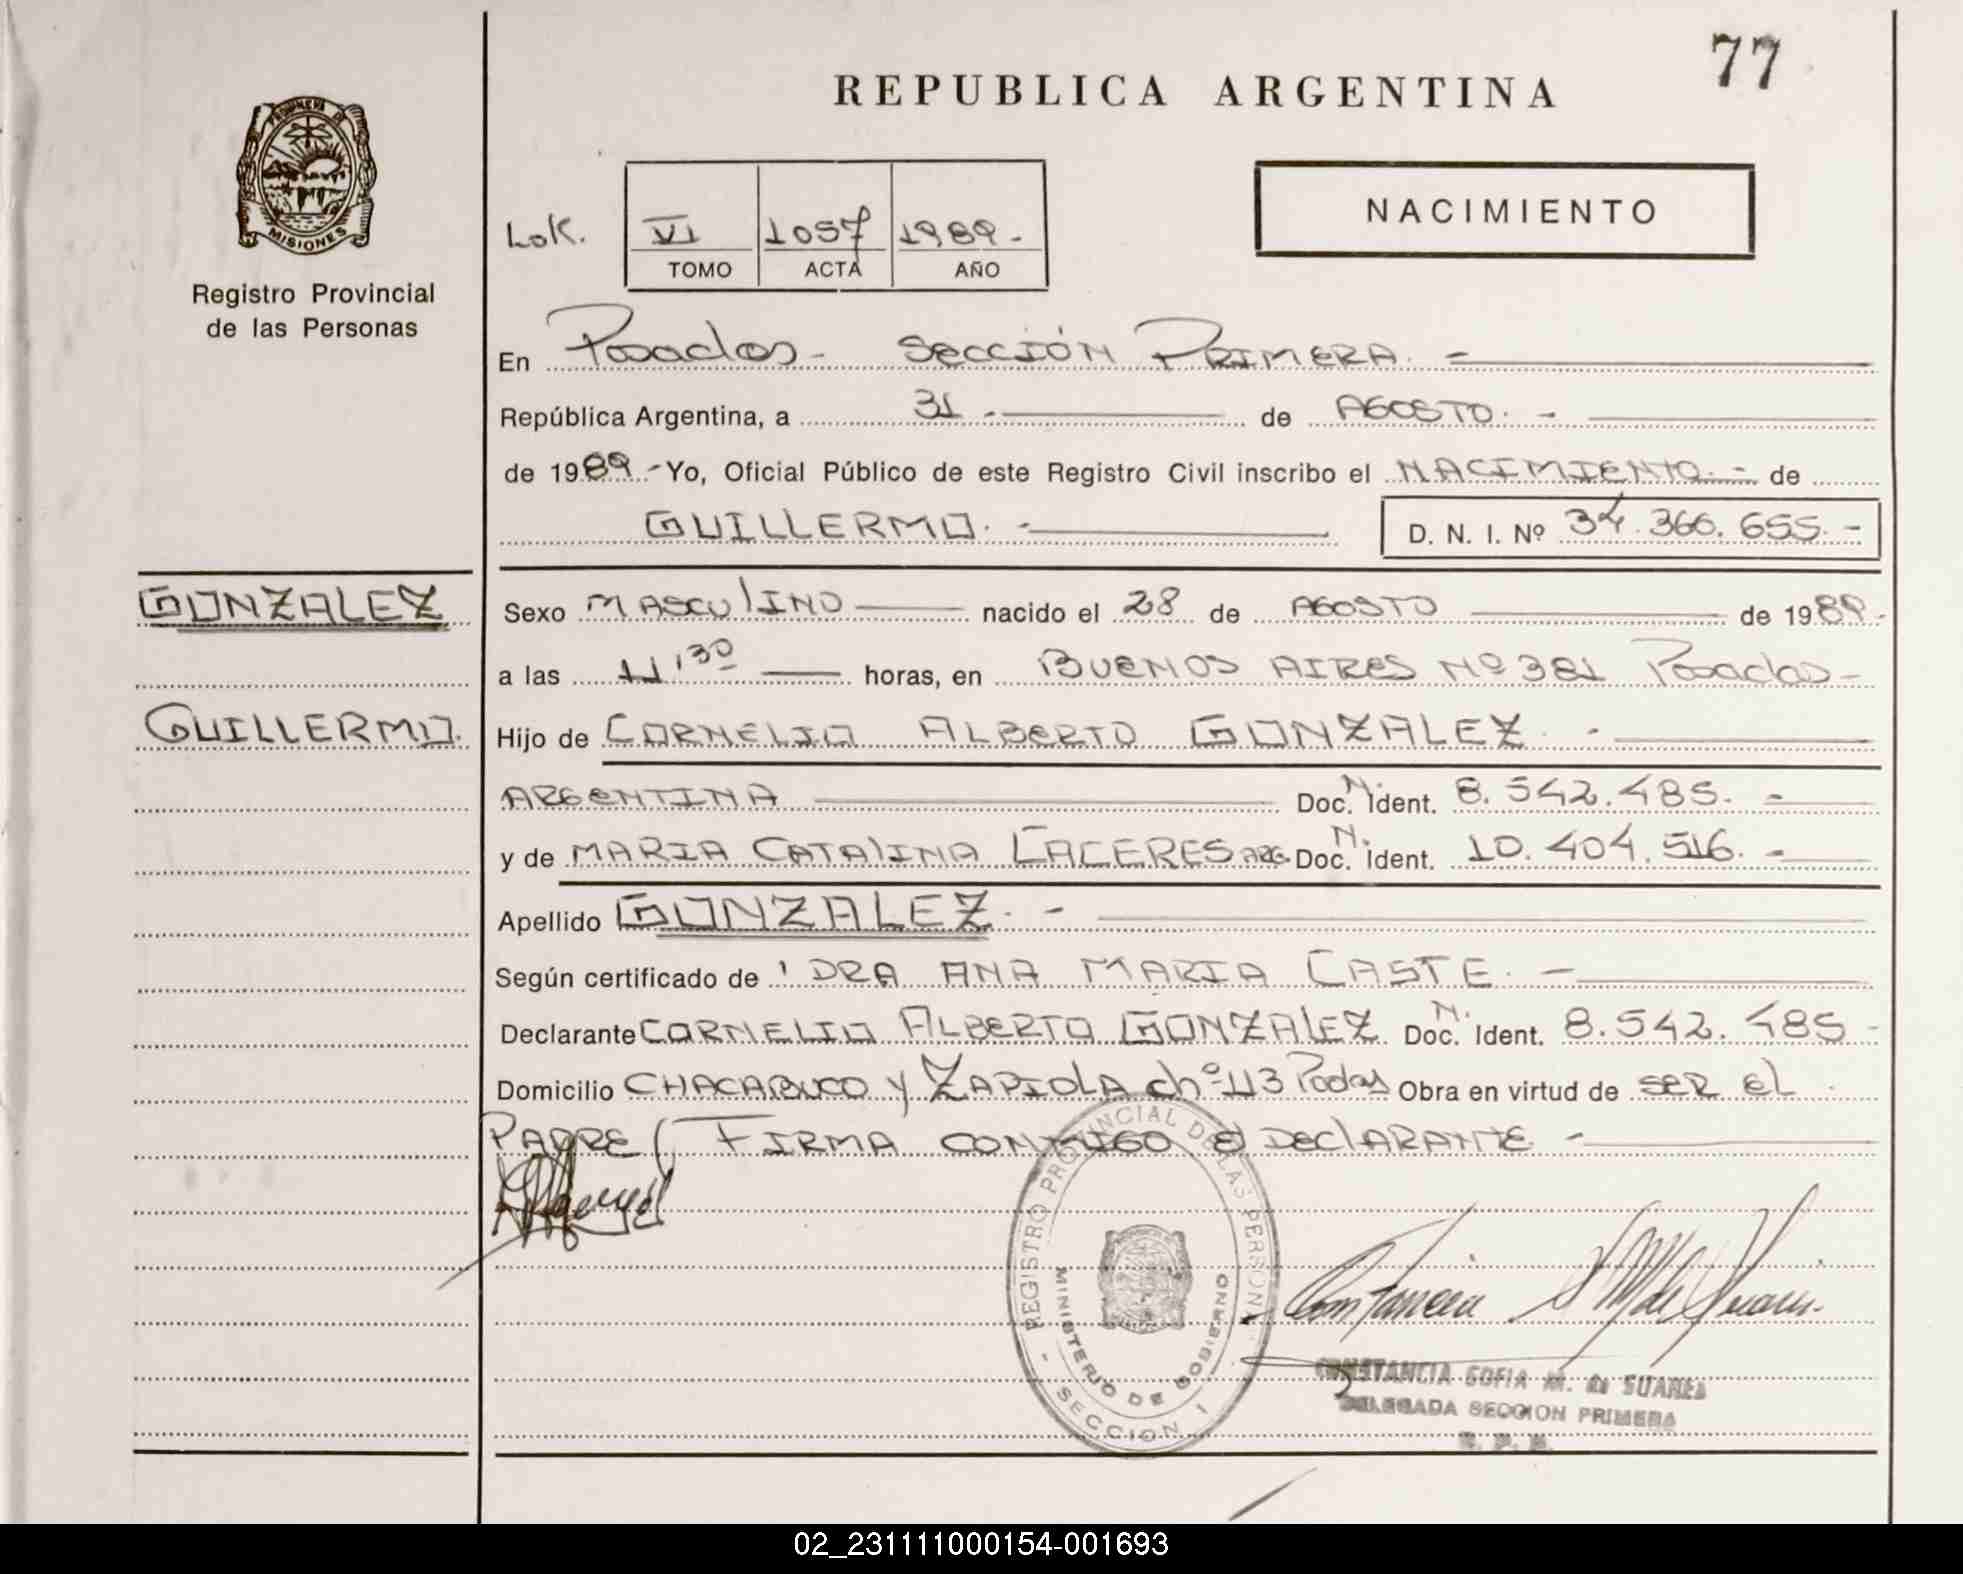 77
REPUBLICA ARGENTINA
PROVINCIA DE
MISIONES
Registro Provincial
de las Personas
NACIMIENTO
LOK.
VI 1057 1989.-
TOMO ACTA AÑO
En Posadas - SECCIÓN PRIMERA. -
República Argentina, a 31.- de AGOSTO. -
de 1989.- Yo, Oficial Público de este Registro Civil inscribo el NACIMIENTO. - de
GUILLERMO. - D. N. I. Nº 34.366.655.-
GONZALEZ
GUILLERMO.
Sexo MASCULINO nacido el 28 de AGOSTO de 1989.-
a las 11'30 horas, en BUENOS AIRES Nº 381 Posadas -
Hijo de CORNELIO ALBERTO GONZALEZ. -
ARGENTINA Doc. N. Ident. 8.542.485. -
y de MARIA CATALINA CACERES ARG. Doc. N. Ident. 10.404.516. -
Apellido GONZALEZ. -
Según certificado de DRA ANA MARIA CASTE. -
Declarante CORNELIO ALBERTO GONZALEZ. Doc. N. Ident. 8.542.485 -
Domicilio CHACABUCO y ZAPIOLA ch º 113 Podas Obra en virtud de SER el
PADRE FIRMA CONMIGO el DEClARANTE -
REGISTRO PROVINCIAL DE LAS PERSONAS
MINISTERIO DE GOBIERNO
- SECCION 1
CONSTANCIA SOFIA M. de SUAREZ
DELEGADA SECCION PRIMERA
R. P. P.
02_231111000154-001693